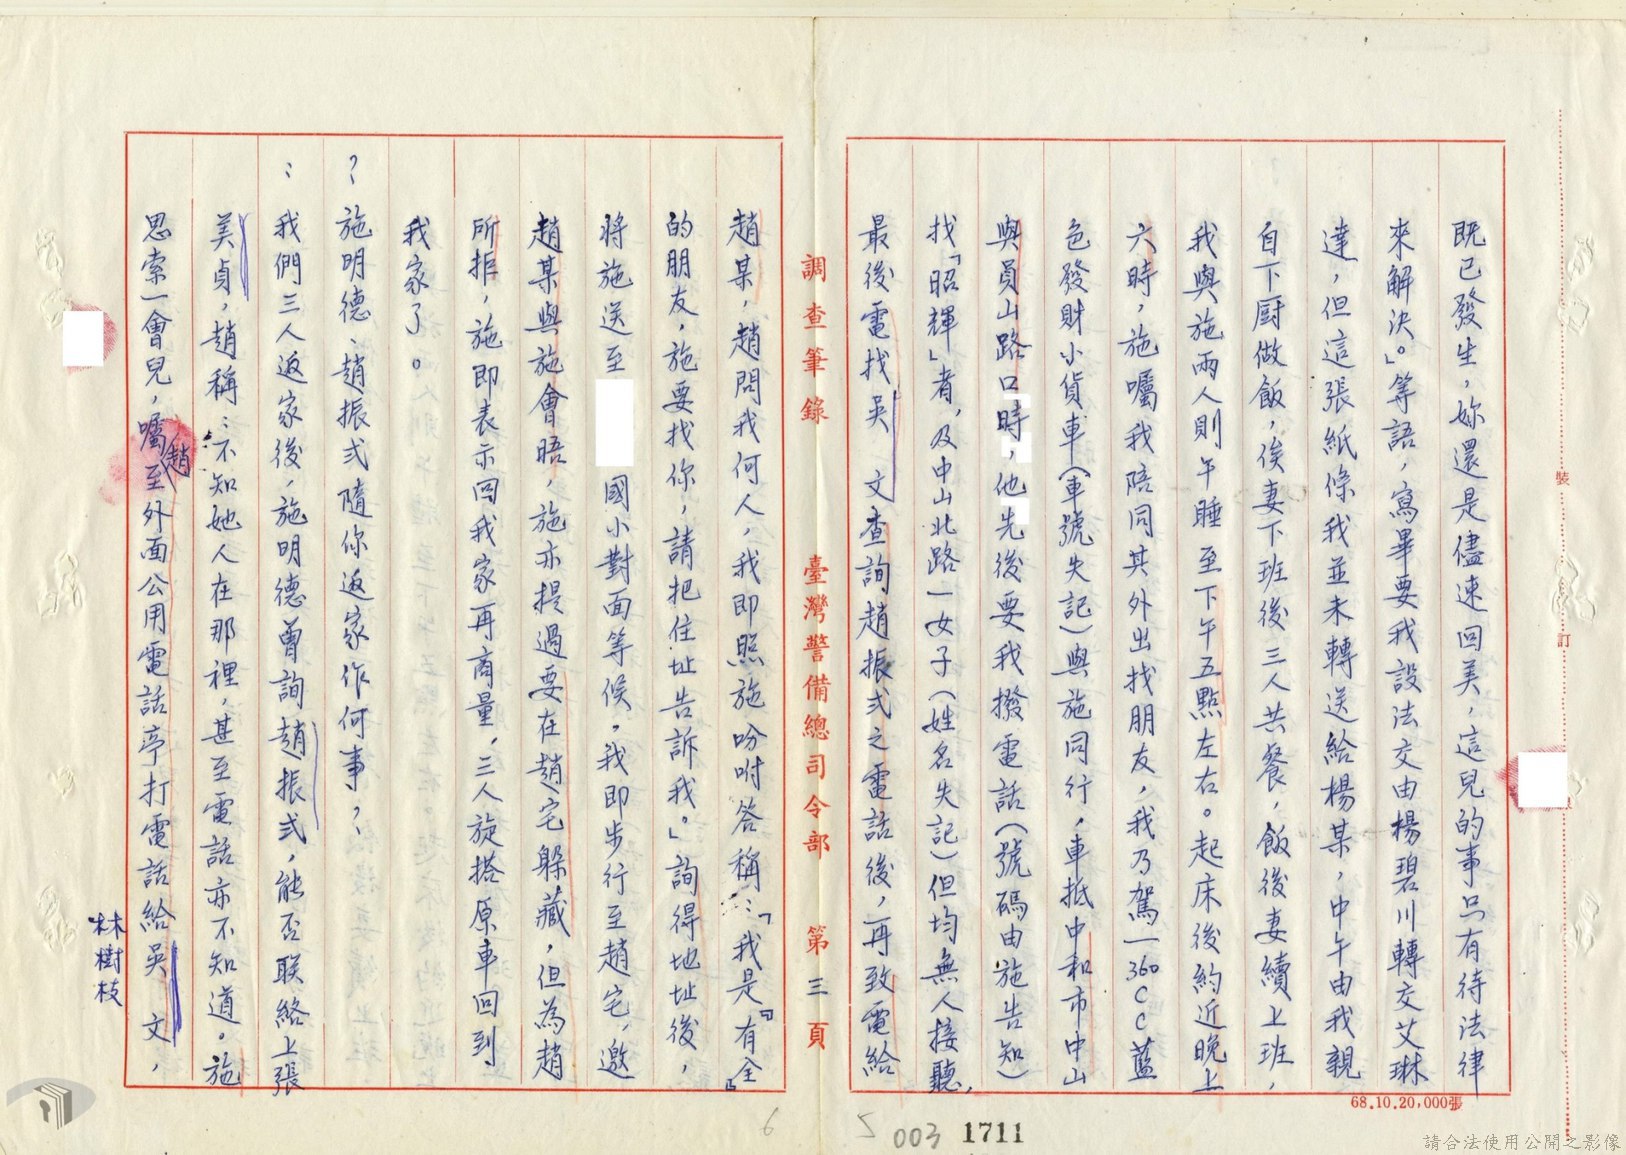 既已發生，妳還是儘速回美，這兒的事只有待法律
來解決。」等語，寫畢要我設法交由楊碧川轉交艾琳
達，但這張紙條我並未轉送給楊某，中午由我親
自下厨做飯，俟妻下班後三人共餐，飯後妻續上班，
我與施兩人則午睡至下午五點左右。起床後約近晚上
六時，施囑我陪同其外出找朋友，我乃駕一360CC藍
色發財小貨車（車號失記）與施同行，車抵中和市中山
與員山路口時，他先後要我撥電話（號碼由施告知）
找「昭輝」者，及中山北路一女子（姓名失記）但均無人接聽，
最後電找吳 文查詢趙振弍之電話後，再致電給
調查筆錄 臺灣警備總司令部 第三頁
趙某，趙問我何人，我即照施吩咐答稱：「我是『有全』
的朋友，施要找你，請把住址告訴我。」詢得地址後，
將施送至 國小對面等候。我即步行至趙宅，邀
趙某與施會晤，施亦提過要在趙宅躲藏，但為趙
所拒，施即表示回我家再商量，三人旋搭原車回到
我家了。
？：施明德、趙振弍隨你返家作何事？
：我們三人返家後，施明德曾詢趙振弍，能否联絡上張
美貞，趙稱：不知她人在那裡，甚至電話亦不知道。施
思索一會兒，囑趙至外面公用電話亭打電話給吳 文，
林樹枝
裝
訂
68.10.20,000張
6
5
003
1711
請合法使用公開之影像